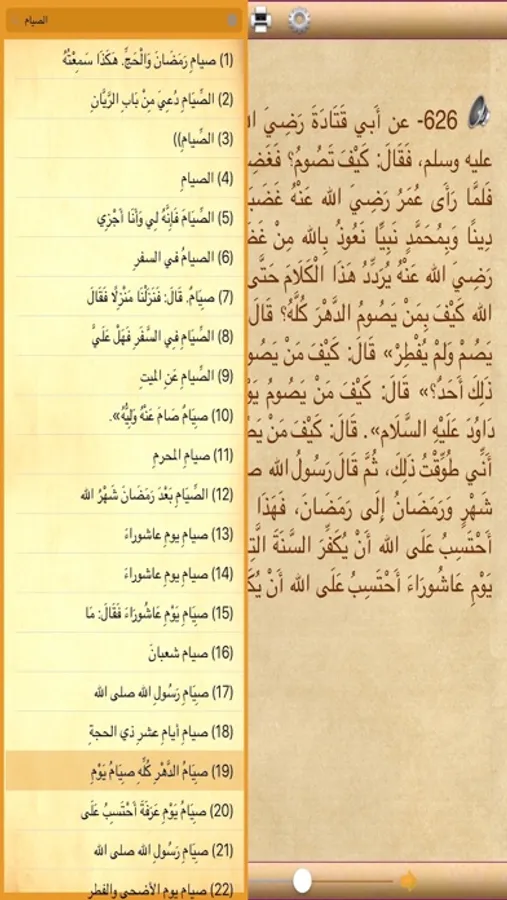 الصيام
(1) صيامِ رَمَضَانَ وَالْحَجِّ. هَكَذَا سَمِعْتُهُ
(2) الصِّيَامِ دُعِيَ مِنْ بَابِ الرَّيَّانِ
(3) الصِّيامِ))
(4) الصيامِ
(5) الصِّيَامَ فَإِنَّهُ لِي وَأَنَا أَجْزِي
(6) الصيامُ في السفرِ
(7) صِيَامٌ. قَالَ: فَنَزَلْنَا مَنْزِلًا فَقَالَ
(8) الصِّيَامِ فِي السَّفَرِ فَهَلْ عَلَيَّ
(9) الصِّيامِ عَنِ الميتِ
(10) صِيَامٌ صَامَ عَنْهُ وَلِيُّهُ».
(11) صيامِ المحرمِ
(12) الصِّيَامِ بَعْدَ رَمَضَانَ شَهْرُ الله
(13) صيامِ يومِ عاشوراءَ
(14) صيامِ يومِ عاشوراءَ
(15) صِيَامِ يَوْمِ عَاشُورَاءَ فَقَالَ: مَا
(16) صيامِ شعبانَ
(17) صِيَامِ رَسُولِ الله صلى الله
(18) صيامِ أيامِ عشرِ ذي الحجةِ
(19) صِيَامُ الدَّهْرِ كُلِّهِ صِيَامُ يَوْمِ
(20) صِيَامُ يَوْمِ عَرَفَةَ أَحْتَسِبُ عَلَى
(21) صِيَامِ رَسُولِ الله صلى الله
(22) صيامِ يومِ الأضحى والفطرِ
626- عن أَبي قَتَادَةَ رَضِيَ
عليه وسلم، فَقَالَ: كَيْفَ تَصُومُ؟
فَلَمَّا رَأَى عُمَرُ رَضِيَ الله عَنْهُ
دِينًا وَبِمُحَمَّدٍ نَبِيًّا نَعُوذُ بِالله مِنْ
رَضِيَ الله عَنْهُ يُرَدِّدُ هَذَا الْكَلَامَ حَتَّى
الله كَيْفَ بِمَنْ يَصُومُ الدَّهْرَ كُلَّهُ؟ قَالَ
يَصُمْ وَلَمْ يُفْطِرْ» قَالَ: كَيْفَ مَنْ
ذَلِكَ أَحَدٌ؟» قَالَ: كَيْفَ مَنْ يَصُومُ
دَاوُدَ عَلَيْهِ السَّلَام». قَالَ: كَيْفَ مَنْ
أَنِّي طُوِّقْتُ ذَلِكَ، ثُمَّ قَالَ رَسُولُ الله
شَهْرٍ وَرَمَضَانُ إِلَى رَمَضَانَ، فَهَذَا
أَحْتَسِبُ عَلَى الله أَنْ يُكَفِّرَ السَّنَةَ
يَوْمِ عَاشُورَاءَ أَحْتَسِبُ عَلَى الله أَنْ